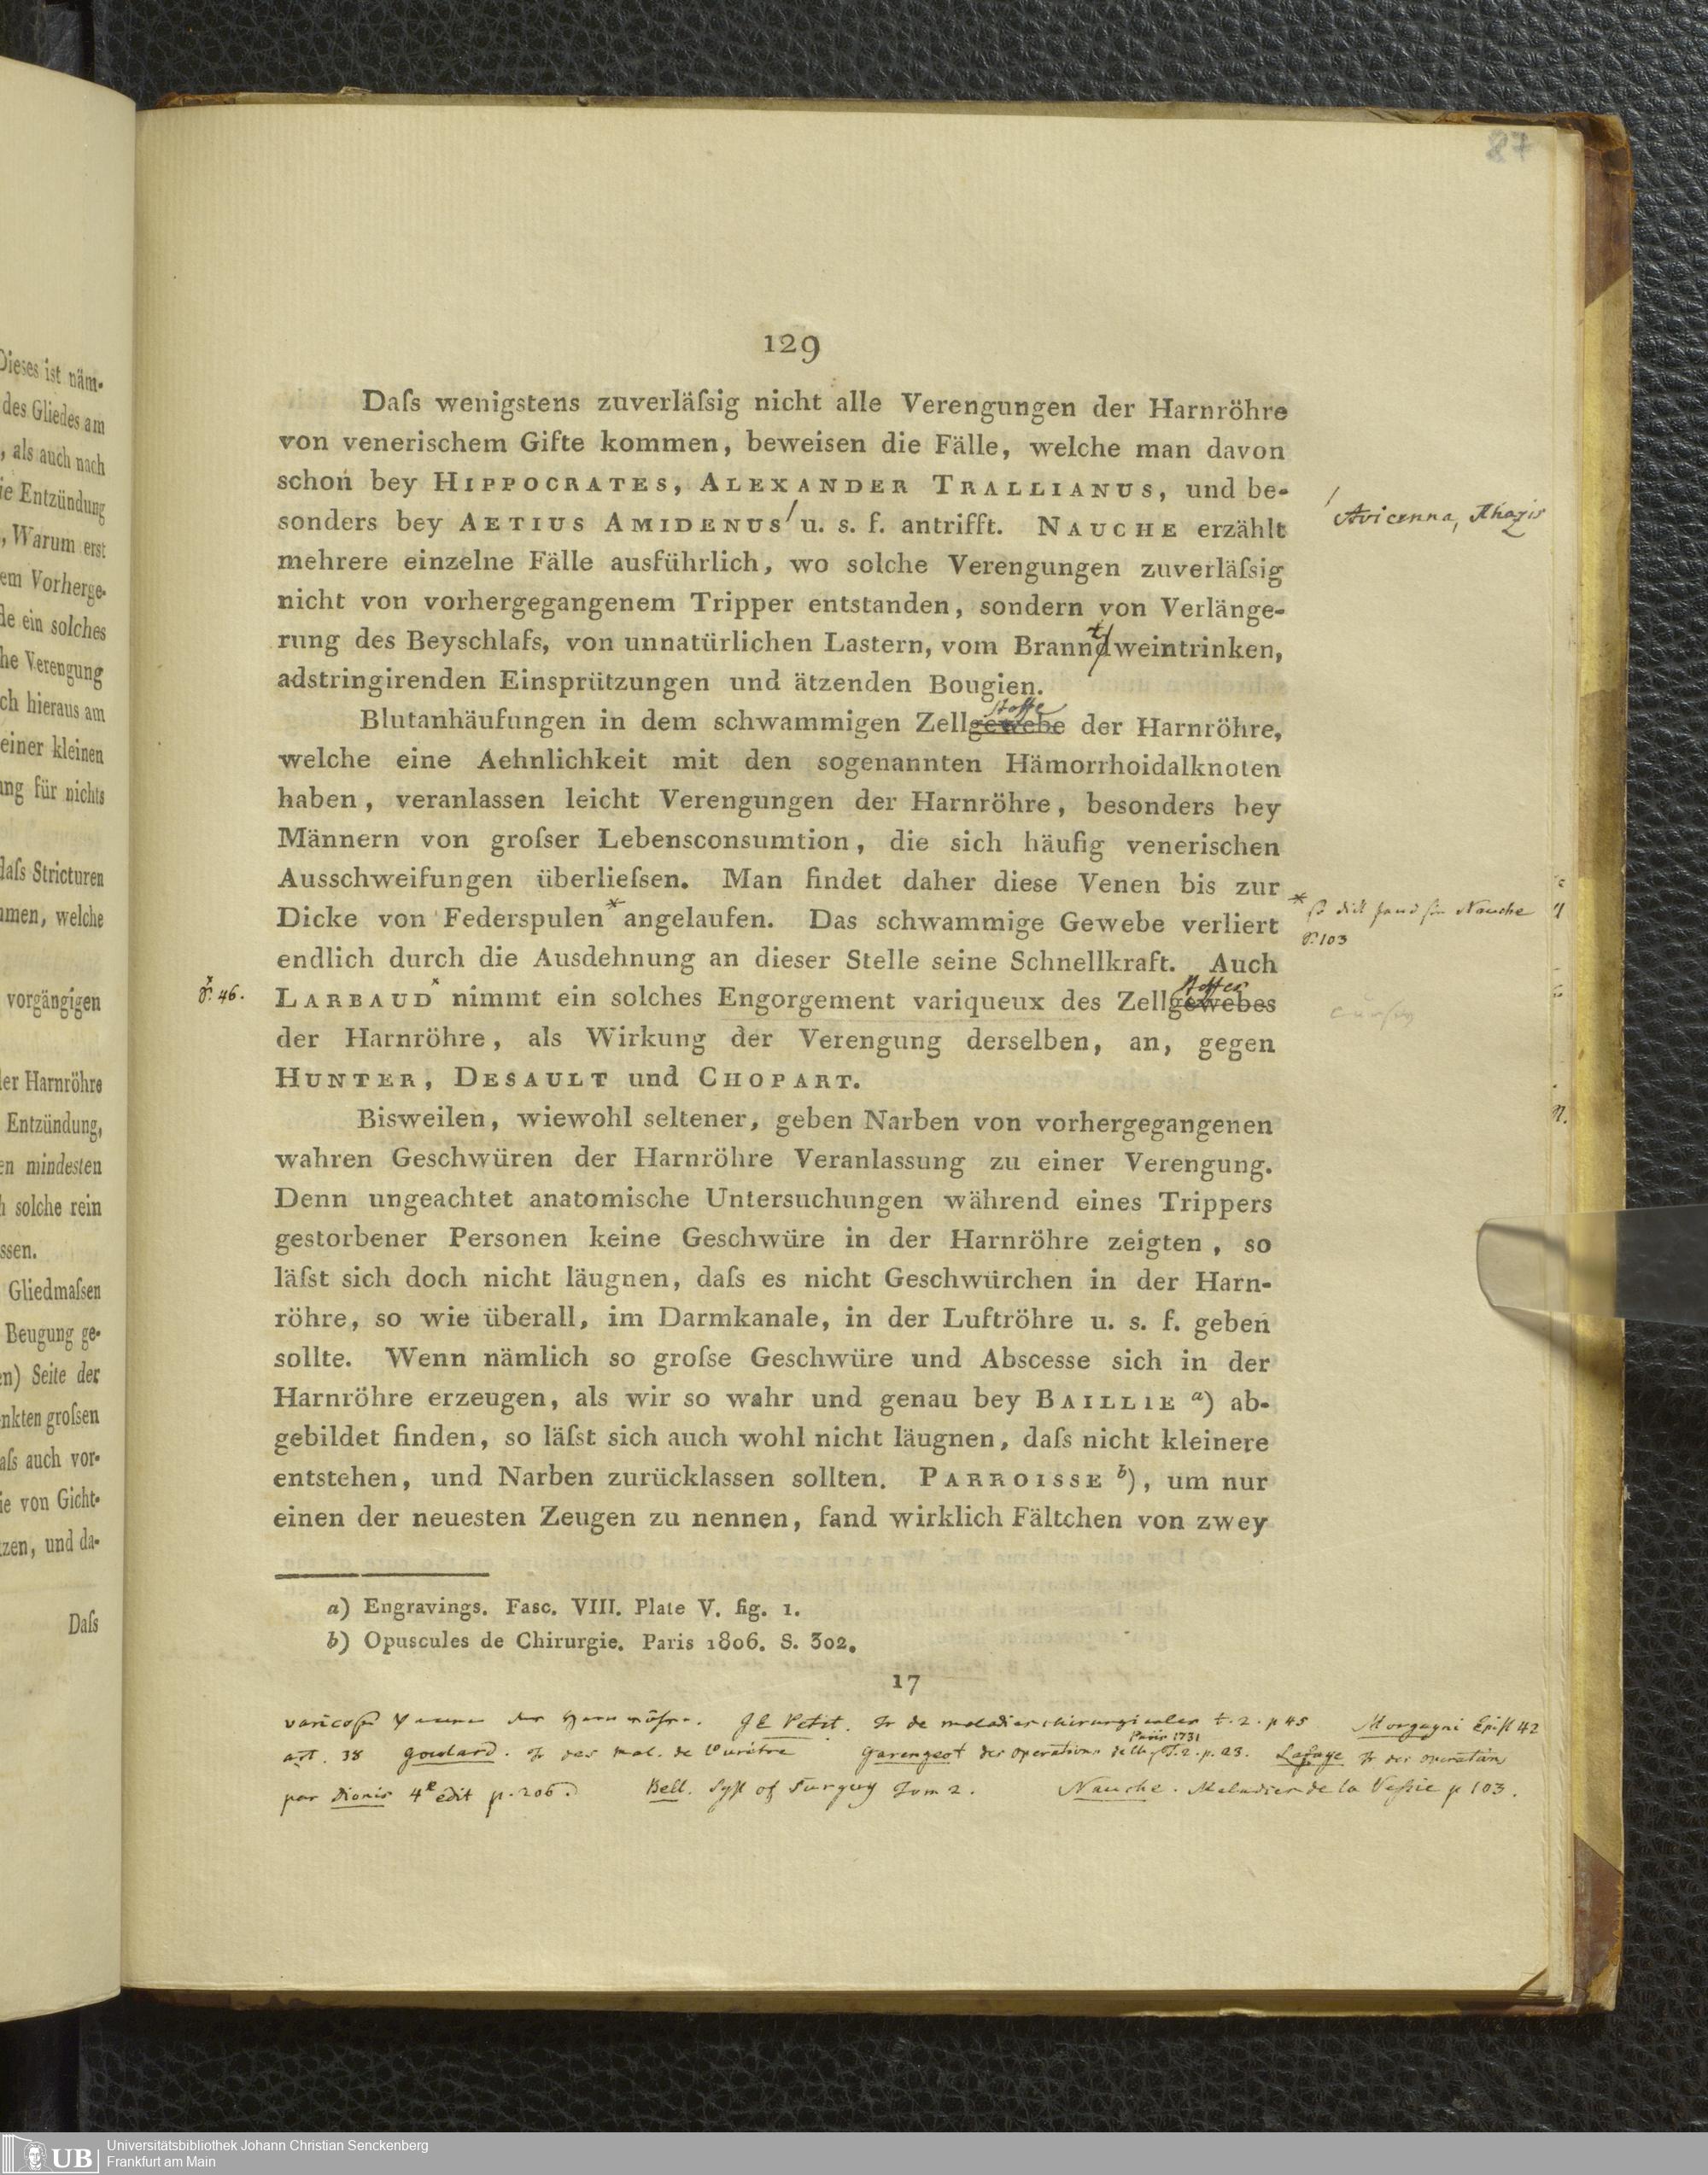 87
129
Daſs wenigstens zuverläſsig nicht alle Verengungen der Harnröhre
von venerischem Gifte kommen, beweisen die Fälle, welche man davon
schon bey HIPPOCRATES, ALEXANDER TRALLIANUS, und be-
sonders bey AETIUS AMIDENUS/ u. s. f. antrifft. NAUCHE erzählt
/ Avicenna, Rhazis
mehrere einzelne Fälle ausführlich, wo solche Verengungen zuverläſsig
nicht von vorhergegangenem Tripper entstanden, sondern von Verlänge-
rung des Beyschlafs, von unnatürlichen Lastern, vom Branndweintrinken,
t
adstringirenden Einsprützungen und ätzenden Bougien.
Blutanhäufungen in dem schwammigen Zellgewebe der Harnröhre,
stoffe
welche eine Aehnlichkeit mit den sogenannten Hämorrhoidalknoten
haben, veranlassen leicht Verengungen der Harnröhre, besonders bey
Männern von groſser Lebensconsumtion, die sich häufig venerischen
Ausschweifungen überlieſsen. Man findet daher diese Venen bis zur
Dicke von Federspulen* angelaufen. Das schwammige Gewebe verliert
* so dick fand sie Nauche
p. 103
endlich durch die Ausdehnung an dieser Stelle seine Schnellkraft. Auch
x p. 46.
LARBAUDx nimmt ein solches Engorgement variqueux des Zellgewebes
stoffes
der Harnröhre, als Wirkung der Verengung derselben, an, gegen
HUNTER, DESAULT und CHOPART.
Bisweilen, wiewohl seltener, geben Narben von vorhergegangenen
wahren Geschwüren der Harnröhre Veranlassung zu einer Verengung.
Denn ungeachtet anatomische Untersuchungen während eines Trippers
gestorbener Personen keine Geschwüre in der Harnröhre zeigten, so
läſst sich doch nicht läugnen, daſs es nicht Geschwürchen in der Harn-
röhre, so wie überall, im Darmkanale, in der Luftröhre u. s. f. geben
sollte. Wenn nämlich so groſse Geschwüre und Abscesse sich in der
Harnröhre erzeugen, als wir so wahr und genau bey BAILLIE a) ab-
gebildet finden, so läſst sich auch wohl nicht läugnen, daſs nicht kleinere
entstehen, und Narben zurücklassen sollten. PARROISSE b), um nur
einen der neuesten Zeugen zu nennen, fand wirklich Fältchen von zwey
a) Engravings. Fasc. VIII. Plate V. fig. 1.
b) Opuscules de Chirurgie. Paris 1806. S. 302.
17
varicose Venen der Harnröhre. J L Petit. Tr de maladies chirurgicales t. 2. p 45 Morgagni Epist 42
art. 38 Goulard. Tr des mal. de l'urétre Garengeot des operations de Ch. T. 2. p. 23. Lafaye Tr des operations
Paris 1731
par Dionis 4e edit p. 206. Bell. Syst of Surgery Tom 2. Nauche. Maladies de la Vessie p 103.
Dieses ist näm-
des Gliedes am
, als auch nach
ie Entzündung
, Warum erst
em Vorherge-
de ein solches
he Verengung
ch hieraus am
einer kleinen
ung für nichts
daſs Stricturen
mmen, welche
vorgängigen
der Harnröhre
Entzündung,
en mindesten
h solche rein
ssen.
Gliedmaſsen
Beugung ge-
en) Seite der
nkten groſsen
aſs auch vor-
ie von Gicht-
tzen, und da-
Daſs
UB
Universitätsbibliothek Johann Christian Senckenberg
Frankfurt am Main